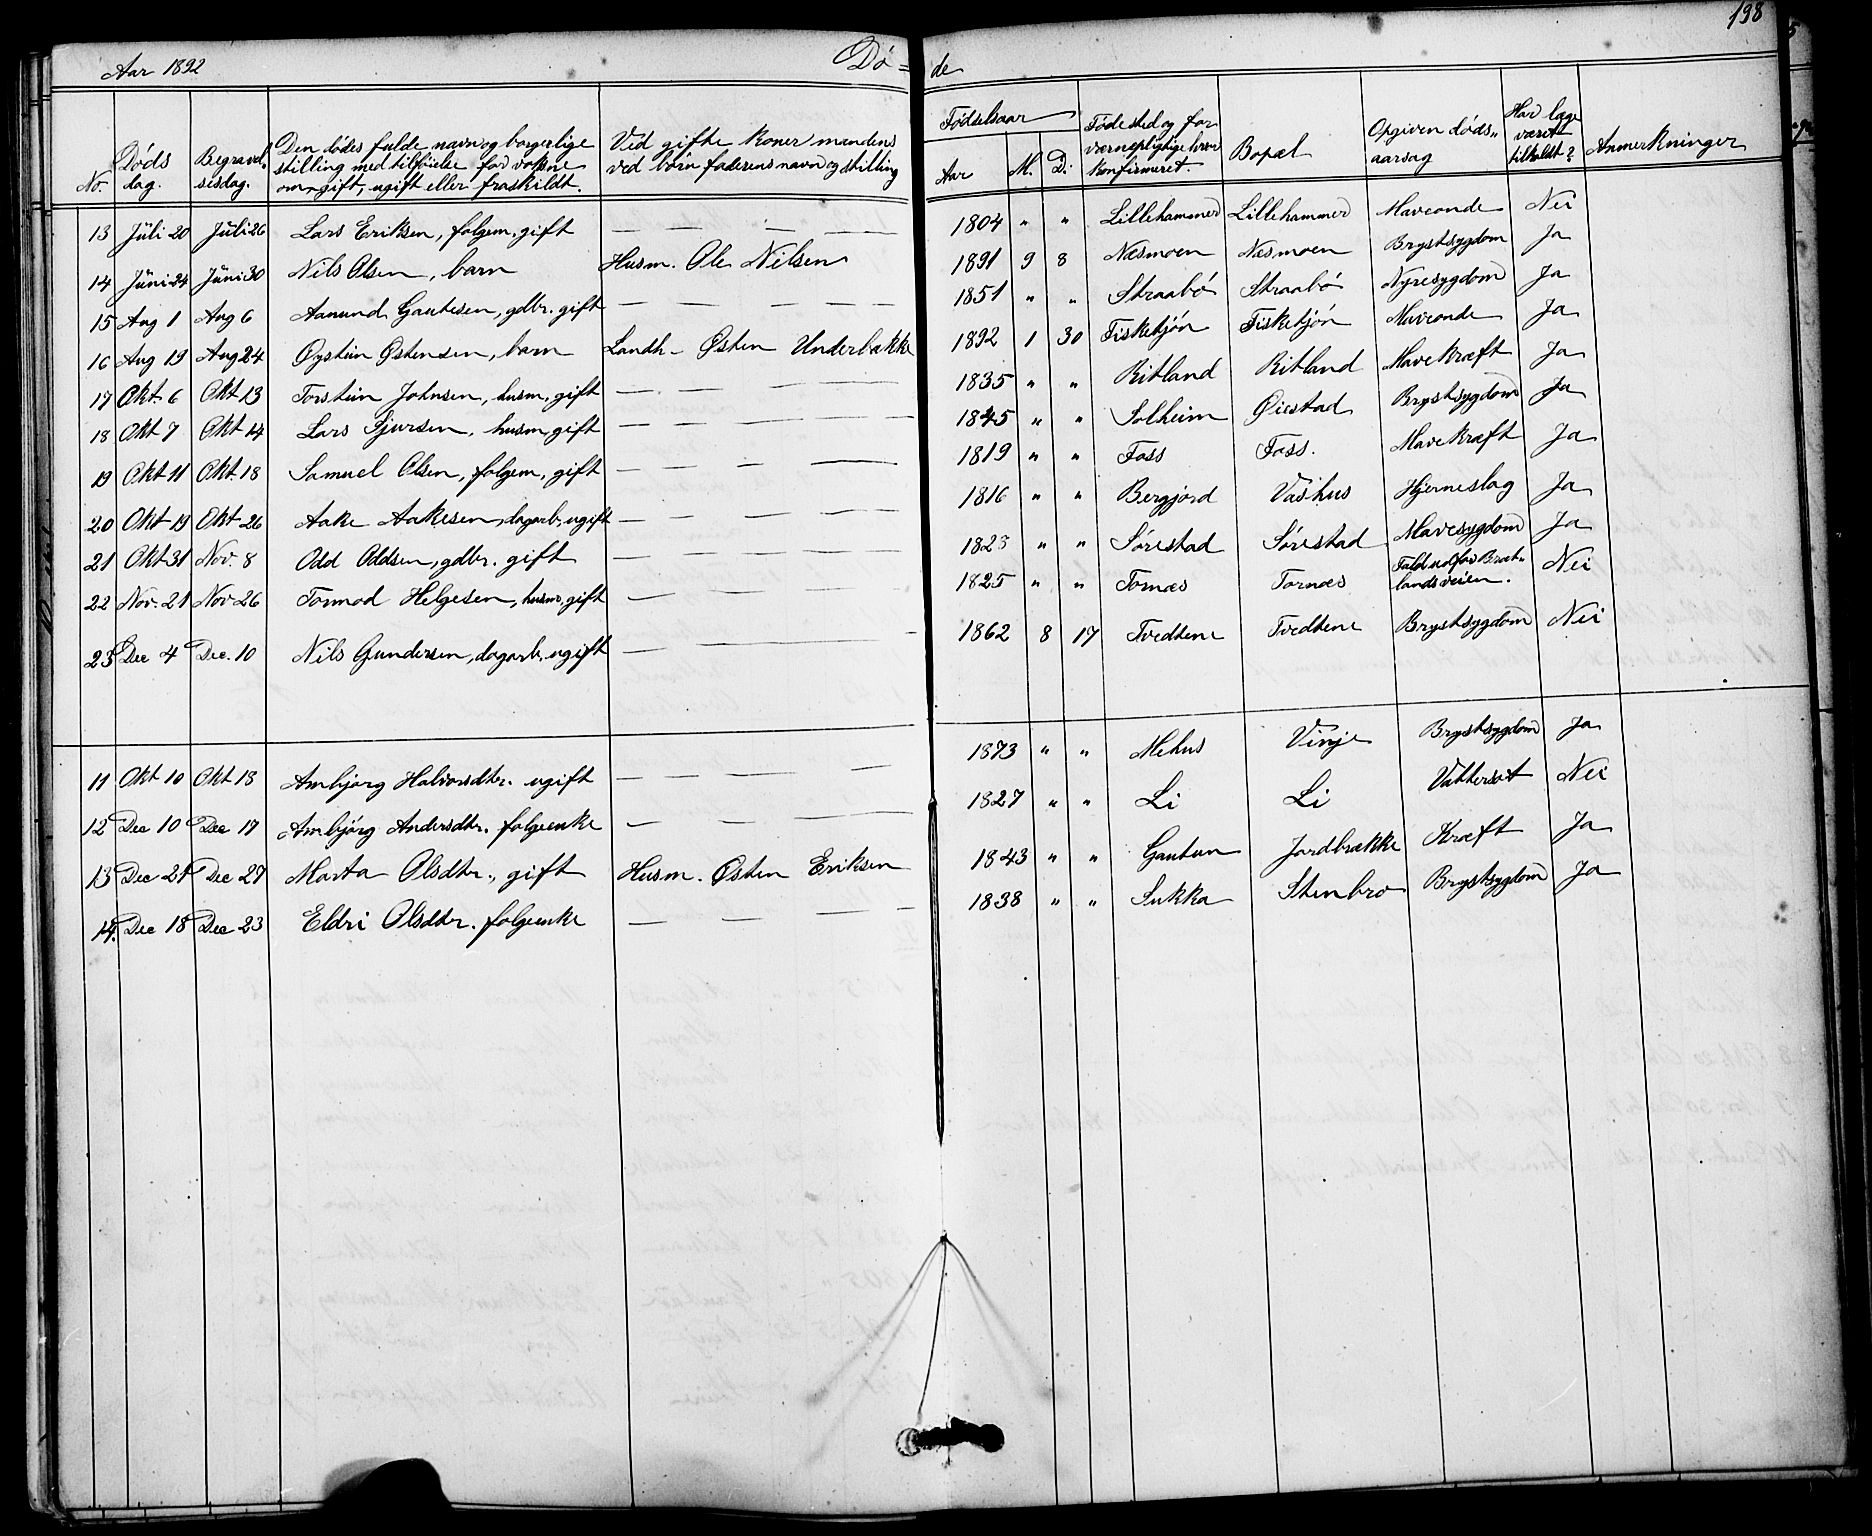 Aar 1892 Dø= de 198
No. Dødsdag. Begravelsesdag. Den dødes fulde navn og borgerlige stilling med tilføielse for voksne om gift, ugift eller fraskildt. Ved gifte koner mandens ved børn faderens navn og stilling Fødselsaar Aar M. D. Fødested og for værnepligtige hvor konfirmeret. Bopæl Opgiven døds„aarsag Har læge været tilkaldt? Anmerkninger
13 Juli 20 Juli 26 Lars Eriksen, folgem. gift — — — — 1804 " " Lillehammer Lillehammer Maveonde Nei
14 Juni 24 Juni 30 Nils Olsen, barn Husm. Ole Nilsen 1891 9 8 Næsmoen Næsmoen Brystsygdom Ja
15 Aug 1 Aug 6 Aanund Gautesen, gdbr. gift — — — — 1851 " " Straabø Straabø Nyresygdom Ja
16 Aug 19 Aug 24 Øystein Østensen, barn Landh- Østen Underbakke 1892 1 30 Fisketjøn Fisketjøn Maveonde Ja
17 Okt. 6 Okt 13 Torstein Johnsen, husm, gift — — — — 1835 " " Ritland Ritland Mavekræft Ja
18 Okt 7 Okt 14 Lars Sjursen, husm, gift — — — — 1845 " " Solheim Øiestad Brystsygdom Ja
19 Okt 11 Okt. 18 Samuel Olsen, folgem, gift — — — — 1819 " " Foss Foss. Mavekræft Ja
20 Okt 19 Okt 26 Aake Aakesen, dagarb, ugift — — — — 1816 " " Bergjord Vashus Hjerneslag Ja
21 Okt 31 Nov. 8 Odd Oddsen, gdbr. gift — — — — 1823 " " Sørestad Sørestad Mavesygdom Ja
22 Nov. 21 Nov 26 Tormod Helgesen, husm, gift — — — — 1825 " " Tornæs Tornæs Fald udfor Bratlandsveien. Nei
23 Dec 4 Dec. 10 Nils Gundersen, dagarb, ugift — — — — 1862 8 17 Tvedtene Tvedtene Brystsygdom Nei
11 Okt 10 Okt 13 Ambjørg Halvorsdtr. ugift — — — — 1873 " " Mehus Vinje Brystsygdom Ja
12 Dec 10 Dec 17 Ambjørg Andersdtr. folgeenke — — — — 1827 " " Li Li Vattersot Nei
13 Dec 21 Dec 27 Marta Olsdtr., gift Husm. Østen Eriksen 1843 " " Gautun Jordbrække Kræft Ja
14. Dec 18 Dec 23 Eldri Olsdtr. folgeenke — — — — 1838 " " Sukka Stenbro Brystsygdom Ja